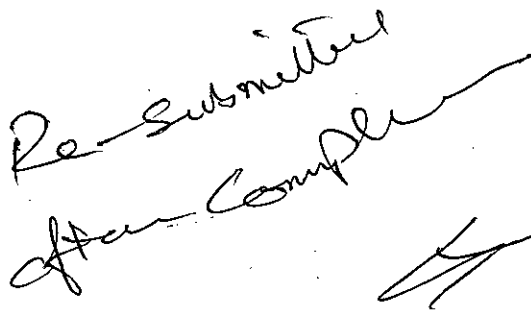 Re-Submitted
after Compl